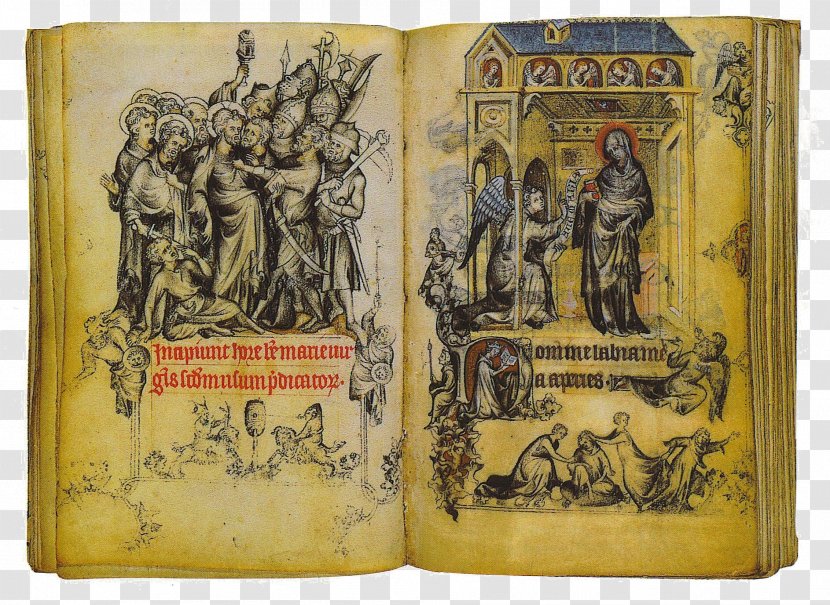 Incipiunt hore be marie uir
gīs scḋm usum p̄dicatoꝝ·
AVE GRATIA
Domine labia me
a aperies·